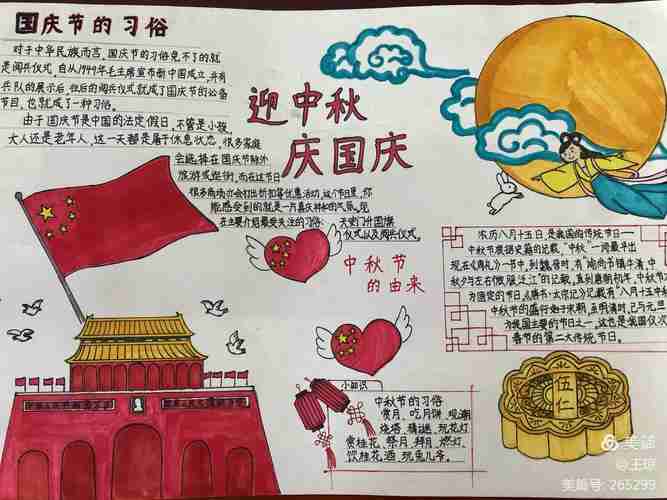 国庆节的习俗
对于中华民族而言,国庆节的习俗免不了的就
是阅兵仪式,自从1949年毛主席宣布新中国成立,并有
兵队的展示后,往后的阅兵仪式就成了国庆节的必备
节目,也就成了一种习俗。
由于国庆节是中国的法定假日,不管是小孩,
大人还是老年人,这一天都是属于休息状态,很多家庭
会选择在国庆节除外
旅游或逛街,而在这节日
很多商场亦会打出折扣等优惠活动,这个节日里,你
能感受到的就是一片喜庆祥和的气氛。现
在主要介绍最受关注的习俗:天安门升国旗
仪式以及阅兵仪式。
迎中秋
庆国庆
中秋节
的由来
农历八月十五日是我国的传统节日——
中秋节。根据史籍的记载,“中秋”一词最早出
现在《周礼》一书中,到魏晋时,有“谕尚书镇牛渚,中
秋夕与左右微服泛江”的记载,直到唐朝初年,中秋节
为固定的节日,《唐书·太宗记》记载有“八月十五中秋
中秋节的盛行始于宋朝,至明清时,已与元旦
为我国主要的节日之一,这也是我国仅次
春节的第二大传统节日。
小知识
中秋节的习俗
赏月、吃月饼、观潮
烧塔、猜谜、玩花灯
赏桂花、祭月、拜月、燃灯、
饮桂花酒、玩兔儿爷。
伍
仁
美篇
@王琼
美篇号:265299